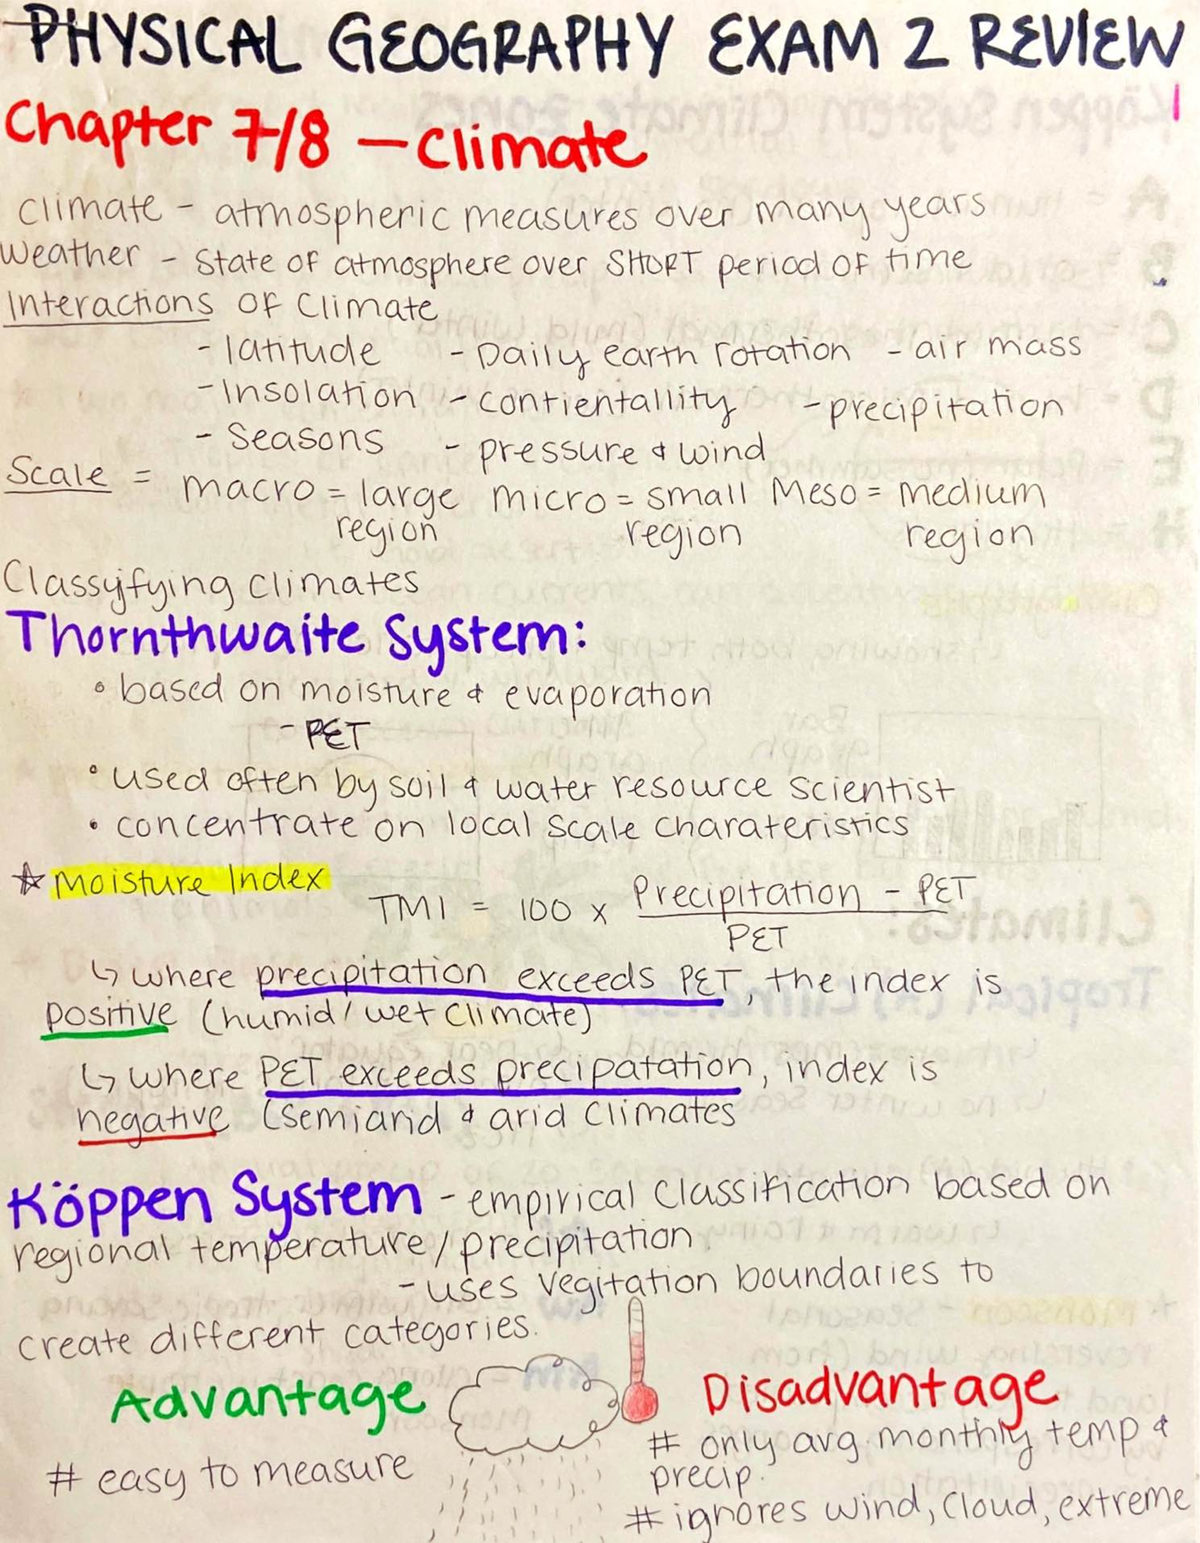 PHYSICAL GEOGRAPHY EXAM 2 REVIEW
1
Chapter 7/8 – Climate
Climate - atmospheric measures over many years
Weather - State of atmosphere over SHORT period of time
Interactions of Climate
- latitude - Daily earth rotation - air mass
- Insolation - contientallity - precipitation
- Seasons - pressure & wind
Scale = macro = large micro = small Meso = medium
region region region
Classyfying climates
Thornthwaite System:
• based on moisture & evaporation
- PET
• used often by soil & water resource scientist
• concentrate on local scale charateristics
☆ Moisture Index
TMI = 100 x Precipitation - PET
PET
↳ where precipitation exceeds PET, the index is
positive (humid/wet climate)
↳ where PET exceeds precipatation, index is
negative (semiarid & arid climates
Köppen System - empirical classification based on
regional temperature/precipitation
- uses vegitation boundaries to
create different categories.
Advantage Disadvantage
# easy to measure # only avg. monthly temp &
precip.
# ignores wind, cloud, extreme